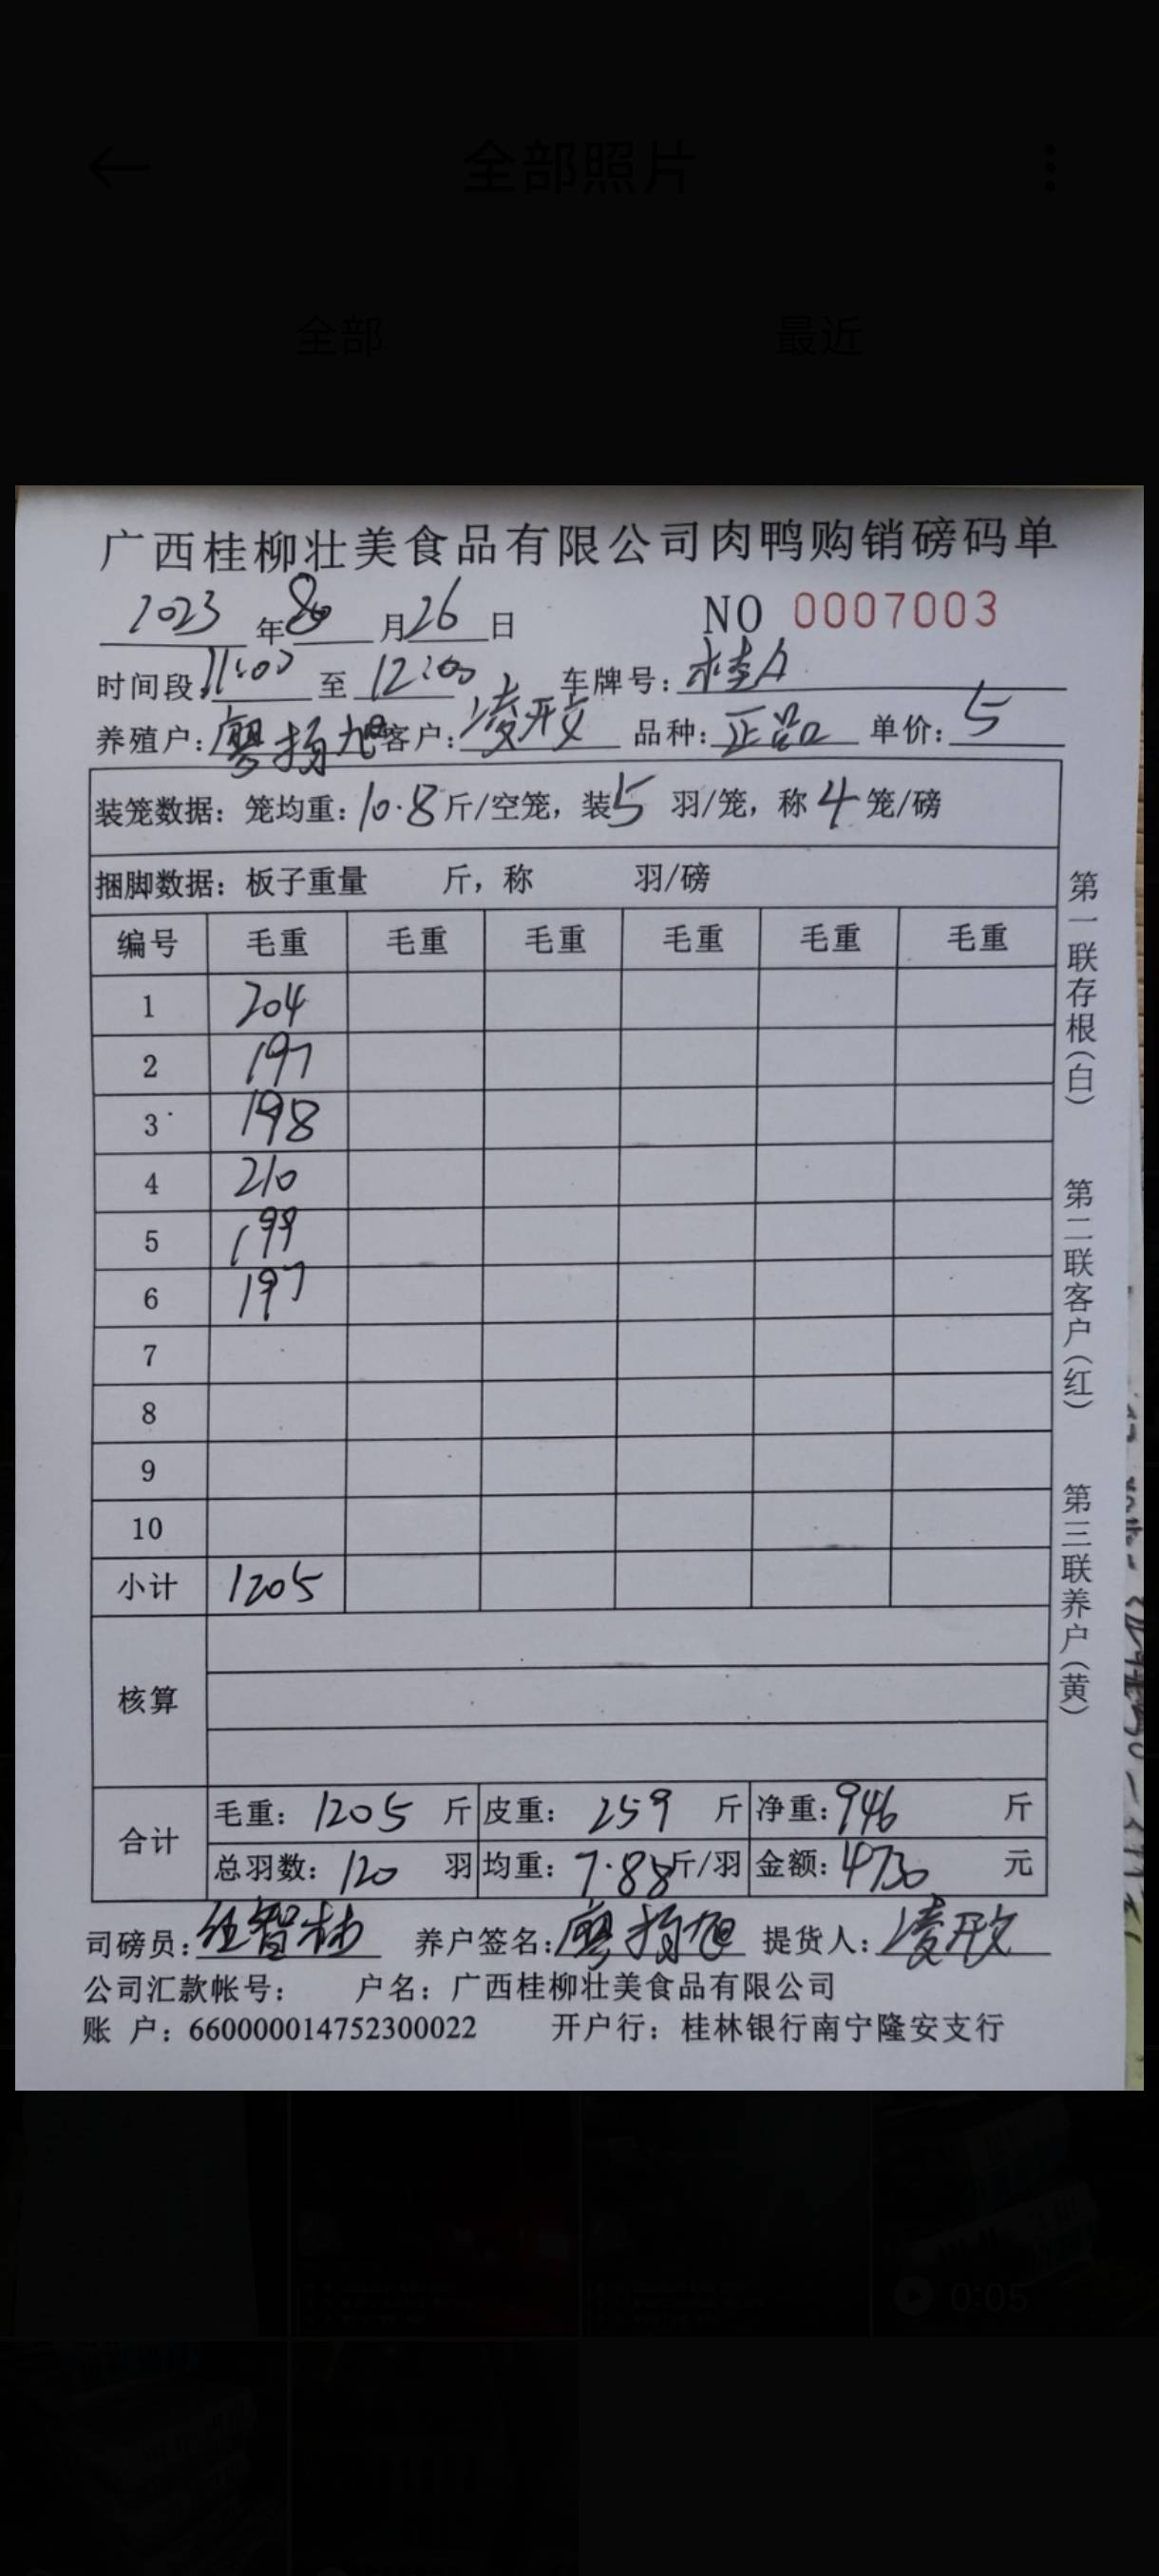 全部照片
全部 最近
广西桂柳壮美食品有限公司肉鸭购销磅码单
2023年8月26日 NO 0007003
时间段:11:00至12:00 车牌号:桂A
养殖户:廖扬旭 客户:凌开文 品种:正品 单价:5
装笼数据: 笼均重:10.8斤/空笼, 装5羽/笼, 称4笼/磅
捆脚数据: 板子重量 斤, 称 羽/磅
编号 毛重 毛重 毛重 毛重 毛重 毛重
1 204
2 197
3 198
4 210
5 199
6 197
7
8
9
10
小计 1205
核算
合计
毛重: 1205 斤 皮重: 259 斤 净重: 946 斤
总羽数: 120 羽 均重: 7.88斤/羽 金额: 4730 元
司磅员: 养户签名:廖扬旭 提货人:凌开文
公司汇款帐号: 户名: 广西桂柳壮美食品有限公司
账 户: 660000014752300022 开户行: 桂林银行南宁隆安支行
第一联存根(白)
第二联客户(红)
第三联养户(黄)
0:05